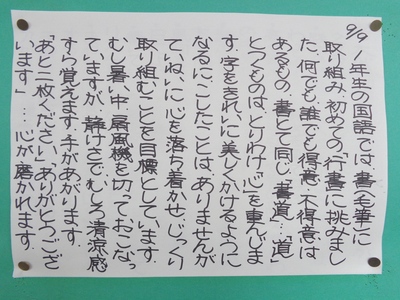 9/9 1年生の国語では、書(毛筆)に
取り組み、初めての「行書」に挑みまし
た。何でも、誰でも得意・不得意は
あるもの。書とて同じ。「書道」…「道」
とつくものは、とりわけ「心」を重んじま
す。字をきれいに美しくかけるように
なるにこしたことはありませんが、
ていねいに心を落ち着かせ、じっくり
取り組むことを目標としています。
むし暑い中、扇風機を切っておこなっ
ていますが、静けさでむしろ清涼感
すら覚えます。手があがります。
「あと二枚ください」「ありがとうござ
います」…心が磨かれます。